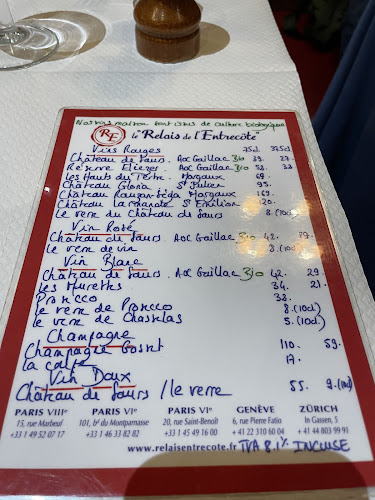 Nos vins maison sont issus de culture biologique
RE
le "Relais de l'Entrecôte"
Vins Rouges 75cl 37,5cl
Château de Saurs. AOC Gaillac Bio 39. 27.
Réserve Eliezer. Bio 52. 33
Les Hauts du Tertre. Margaux 69.
Château Gloria St Julien 95.
Château Rauzan-Ségla Margaux 169.
Château la St Emilion 120.
Le verre du Château de Saurs 8.(10cl)
Vin Rosé
Château de Saurs AOC Gaillac Bio 42. 29.
Le verre de vin 8.(10cl)
Vin Blanc
Château de Saurs. AOC Gaillac Bio 42. 29.
Les Murettes 34. 21.
Prosecco 38.
le verre de Prosecco 8.(10cl)
le verre de Chasselas 5.(10cl)
Champagne
Champagne Gosset 110. 59.
la coupe 17.
Vin Doux
Château de Saurs / le verre 55. 9.(10cl)
PARIS VIIIe PARIS VIe PARIS VIe GENÈVE ZÜRICH
15, rue Marbeuf 101, bd du Montparnasse 20, rue Saint-Benoît 6, rue Pierre Fatio In Gassen, 5
+33 1 49 52 07 17 +33 1 46 33 82 82 +33 1 45 49 16 00 +41 22 310 60 04 +41 44 803 99 91
www.relaisentrecote.fr TVA 8,1% INCLUSE